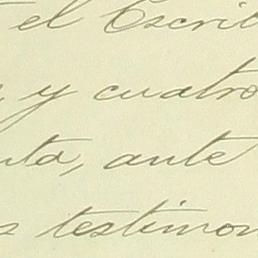 el Escrib
y cuatro
nta, ante
s testimon